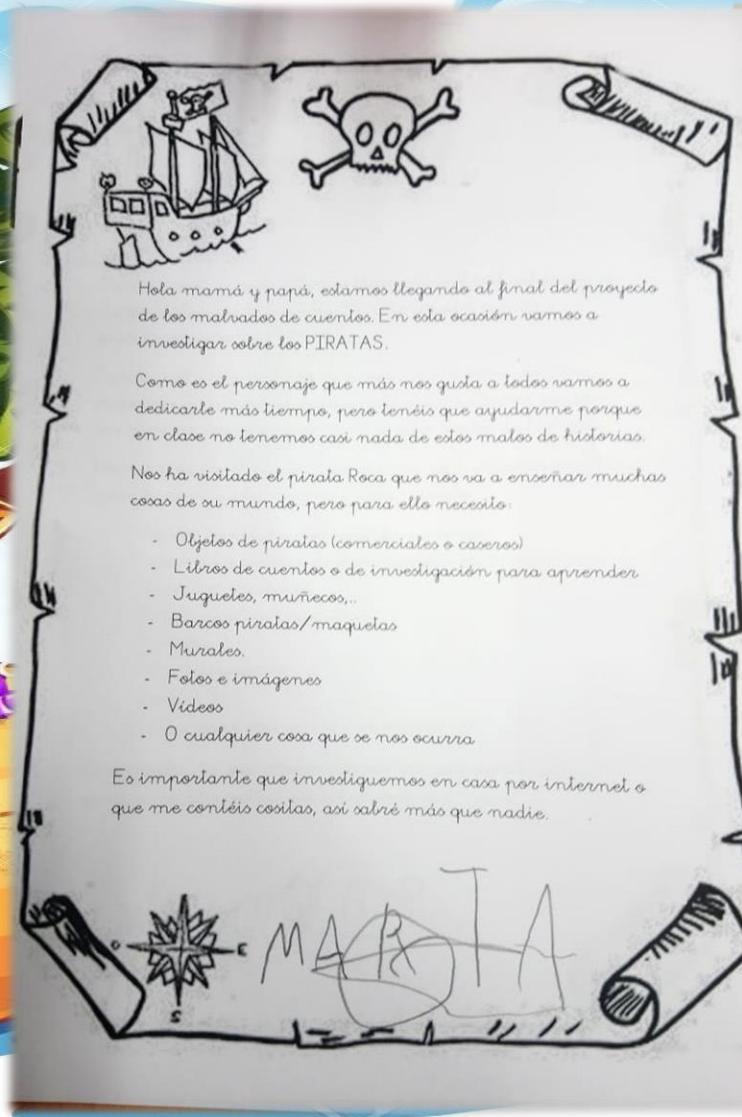 Hola mamá y papá, estamos llegando al final del proyecto
de los malvados de cuentos. En esta ocasión vamos a
investigar sobre los PIRATAS.
Como es el personaje que más nos gusta a todos vamos a
dedicarle más tiempo, pero tenéis que ayudarme porque
en clase no tenemos casi nada de estos malos de historias.
Nos ha visitado el pirata Roca que nos va a enseñar muchas
cosas de su mundo, pero para ello necesito:
- Objetos de piratas (comerciales o caseros)
- Libros de cuentos o de investigación para aprender
- Juguetes, muñecos,..
- Barcos piratas/maquetas
- Murales.
- Fotos e imágenes
- Vídeos
- O cualquier cosa que se nos ocurra
Es importante que investiguemos en casa por internet o
que me contéis cositas, así sabré más que nadie.
O E
S
MARTA